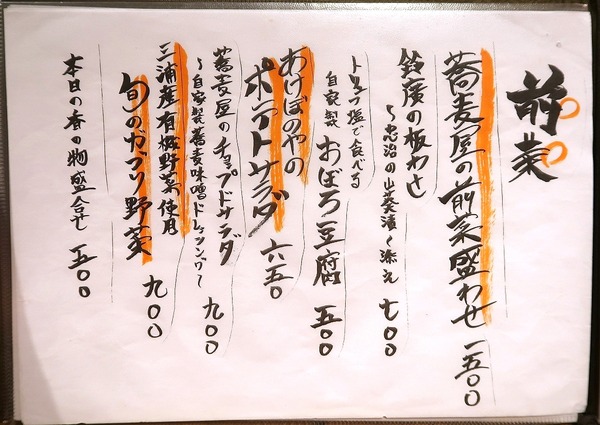 前菜
蕎麦屋の前菜盛わせ 一五〇〇
鈴廣の板わさ
〜忠治の山葵漬〜添え 七〇〇
トリュフ塩で食べる
自家製 おぼろ豆腐 五〇〇
あけぼのやの
ポテトサラダ 六五〇
蕎麦屋のチョップドサラダ
〜自家製蕎麦味噌ドレッシング〜 九〇〇
三浦産有機野菜使用
旬のガブリ野菜 九〇〇
本日の香の物盛合せ 五〇〇